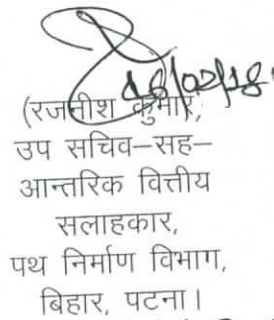 (रजनीश कुमार,
उप सचिव–सह–
आन्तरिक वित्तीय
सलाहकार,
पथ निर्माण विभाग,
बिहार, पटना।